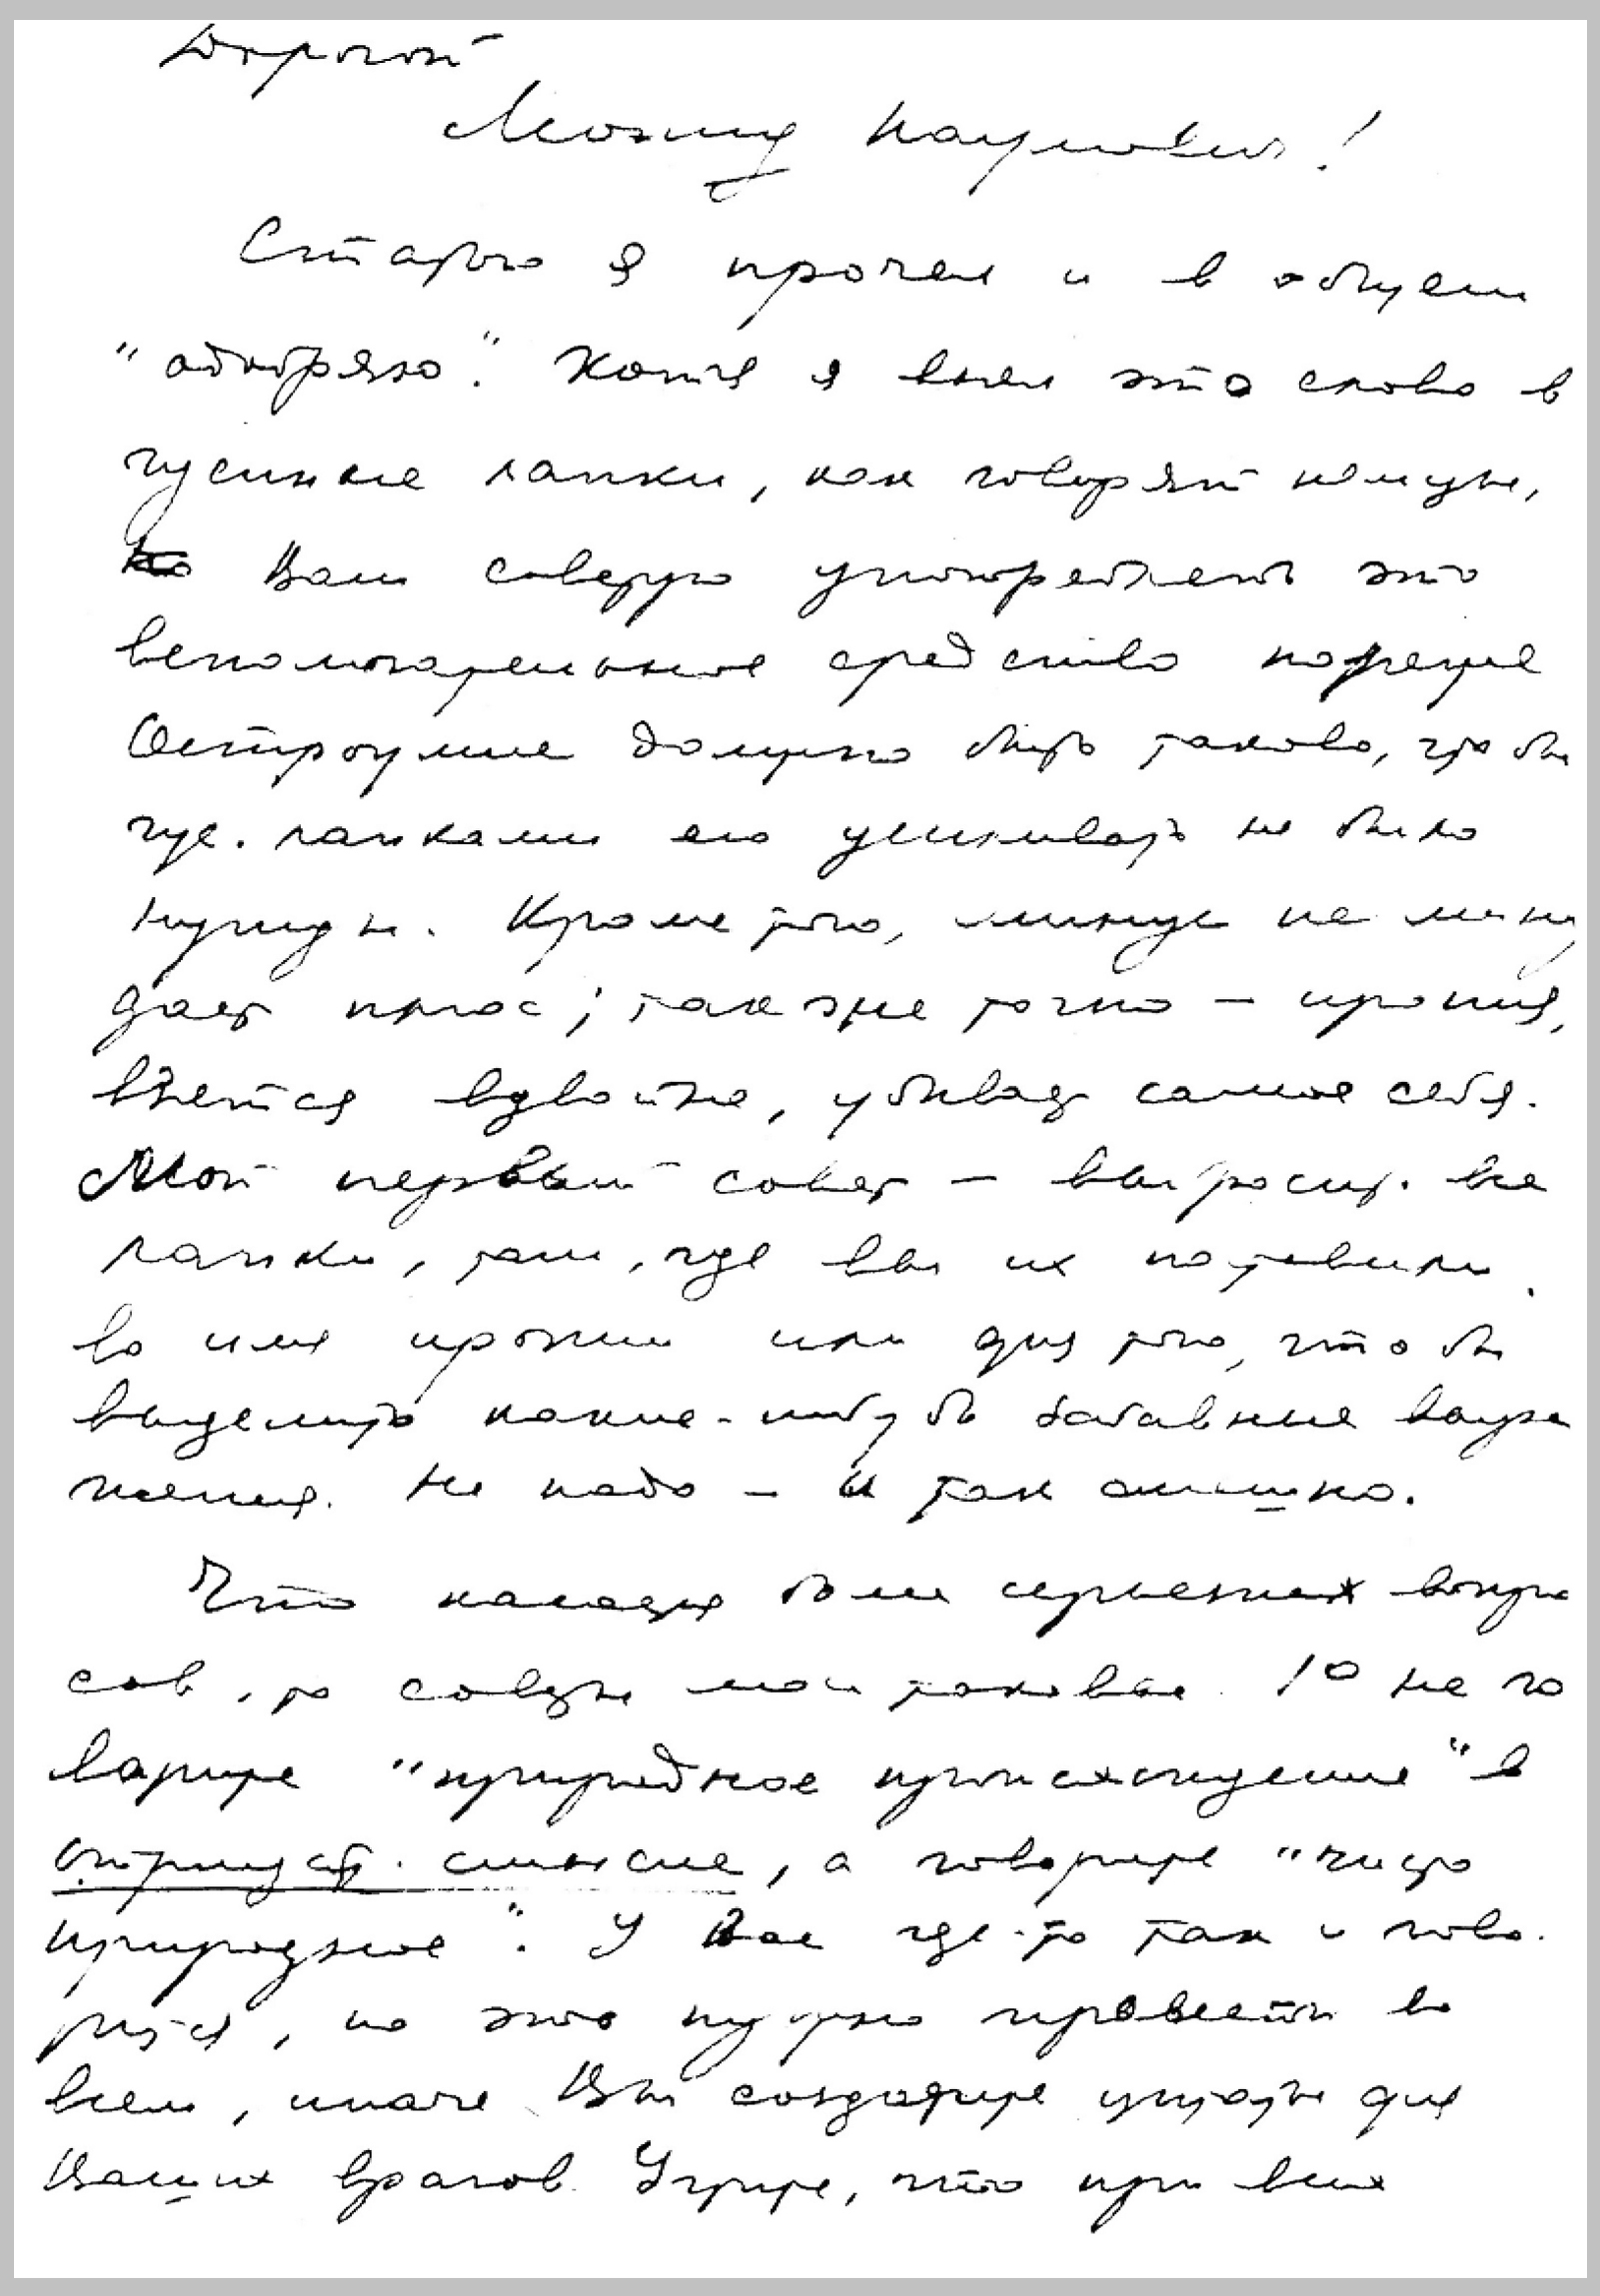 Дорогой
Леонид Наумович!
Статью я прочел и в общем
"одобряю". Хотя я взял это слово в
гусиные лапки, как говорят немцы,
но Вам советую употреблять это
вспомогательное средство пореже
Остроумие должно быть таково, чтобы
гус. лапками его усиливать не было
нужды. Кроме того, минус на мину
дает плюс; также точно – ирония,
взятая вдвойне, убивает самое себя.
Мой первый совет – выбросит. все
лапки, там, где вы их поставили
во имя иронии или для того, что бы
выделить какие-нибудь забавные выра
жения. Не надо – и так смешно.
Что касается более серьезных вопро
сов, то советы мои таковы. 1º не го
ворите "природное происхождение" в
отрицат. смысле, а говорите "чисто
природное". У Вас где-то так и гово.
рится, но это нужно провести во
всем, иначе Вы создадите цитаты для
Ваших врагов. Учтите, что при всех